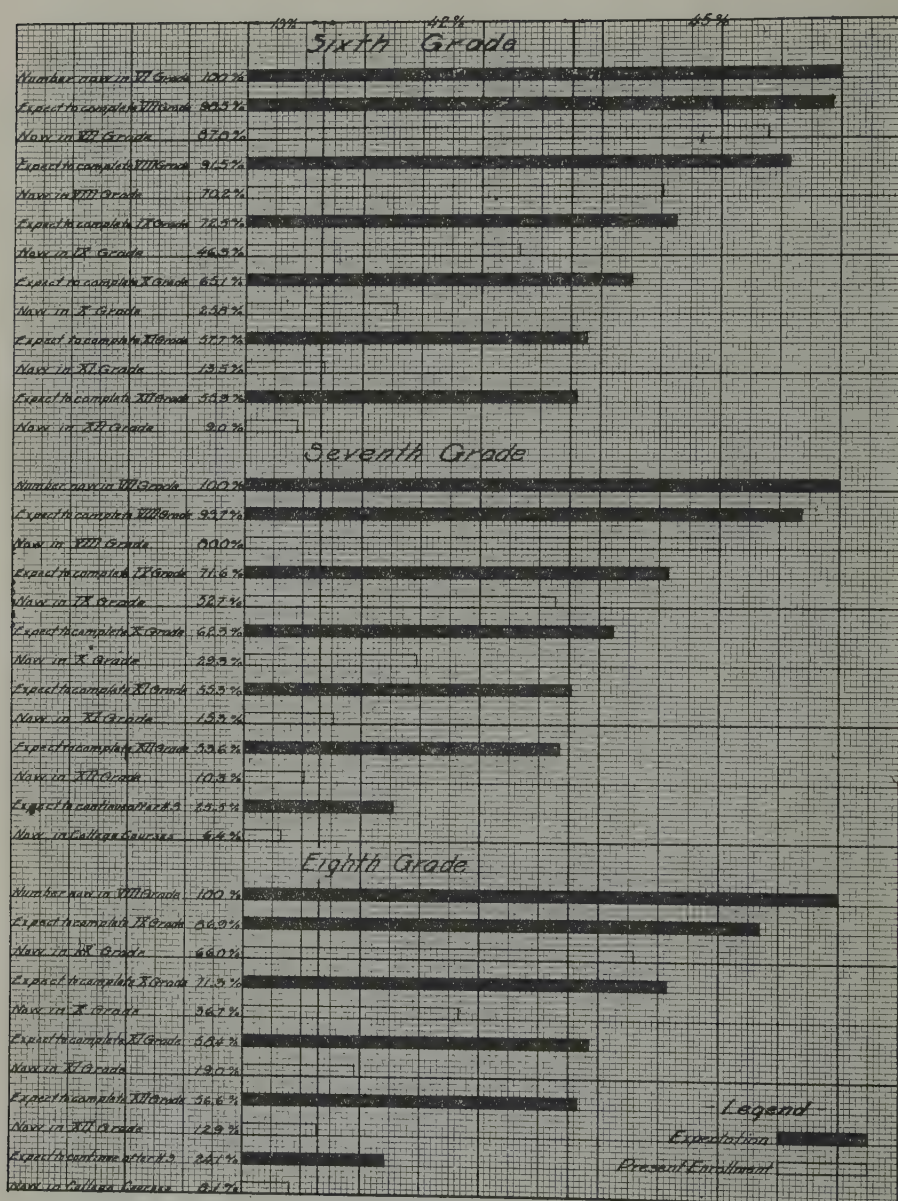 13% 42% 45%
Sixth Grade
Number now in VI Grade 100%
Expect to complete VII Grade
Now in VII Grade 87.8%
Expect to complete VIII Grade 91.5%
Now in VIII Grade 70.2%
Expect to complete IX Grade 72.5%
Now in IX Grade
Expect to complete X Grade 65.1%
Now in X Grade 25.8%
Expect to complete XI Grade 57.7%
Now in XI Grade 13.5%
Expect to complete XII Grade
Now in XII Grade 9.0%
Seventh Grade
Number now in VII Grade 100%
Expect to complete VIII Grade
Now in VIII Grade 80.0%
Expect to complete IX Grade 71.6%
Now in IX Grade 52.7%
Expect to complete X Grade
Now in X Grade 29.3%
Expect to complete XI Grade
Now in XI Grade
Expect to complete XII Grade 53.6%
Now in XII Grade 10.3%
Expect to continue after H.S
Now in College Courses 6.4%
Eighth Grade
Number now in VIII Grade 100%
Expect to complete IX Grade 86.9%
Now in IX Grade 66.0%
Expect to complete X Grade
Now in X Grade 36.7%
Expect to complete XI Grade 58.4%
Now in XI Grade 19.0%
Expect to complete XII Grade 56.6%
Now in XII Grade 12.9%
Expect to continue after H.S 24.1%
Now in College Courses
Legend
Expectation
Present Enrollment